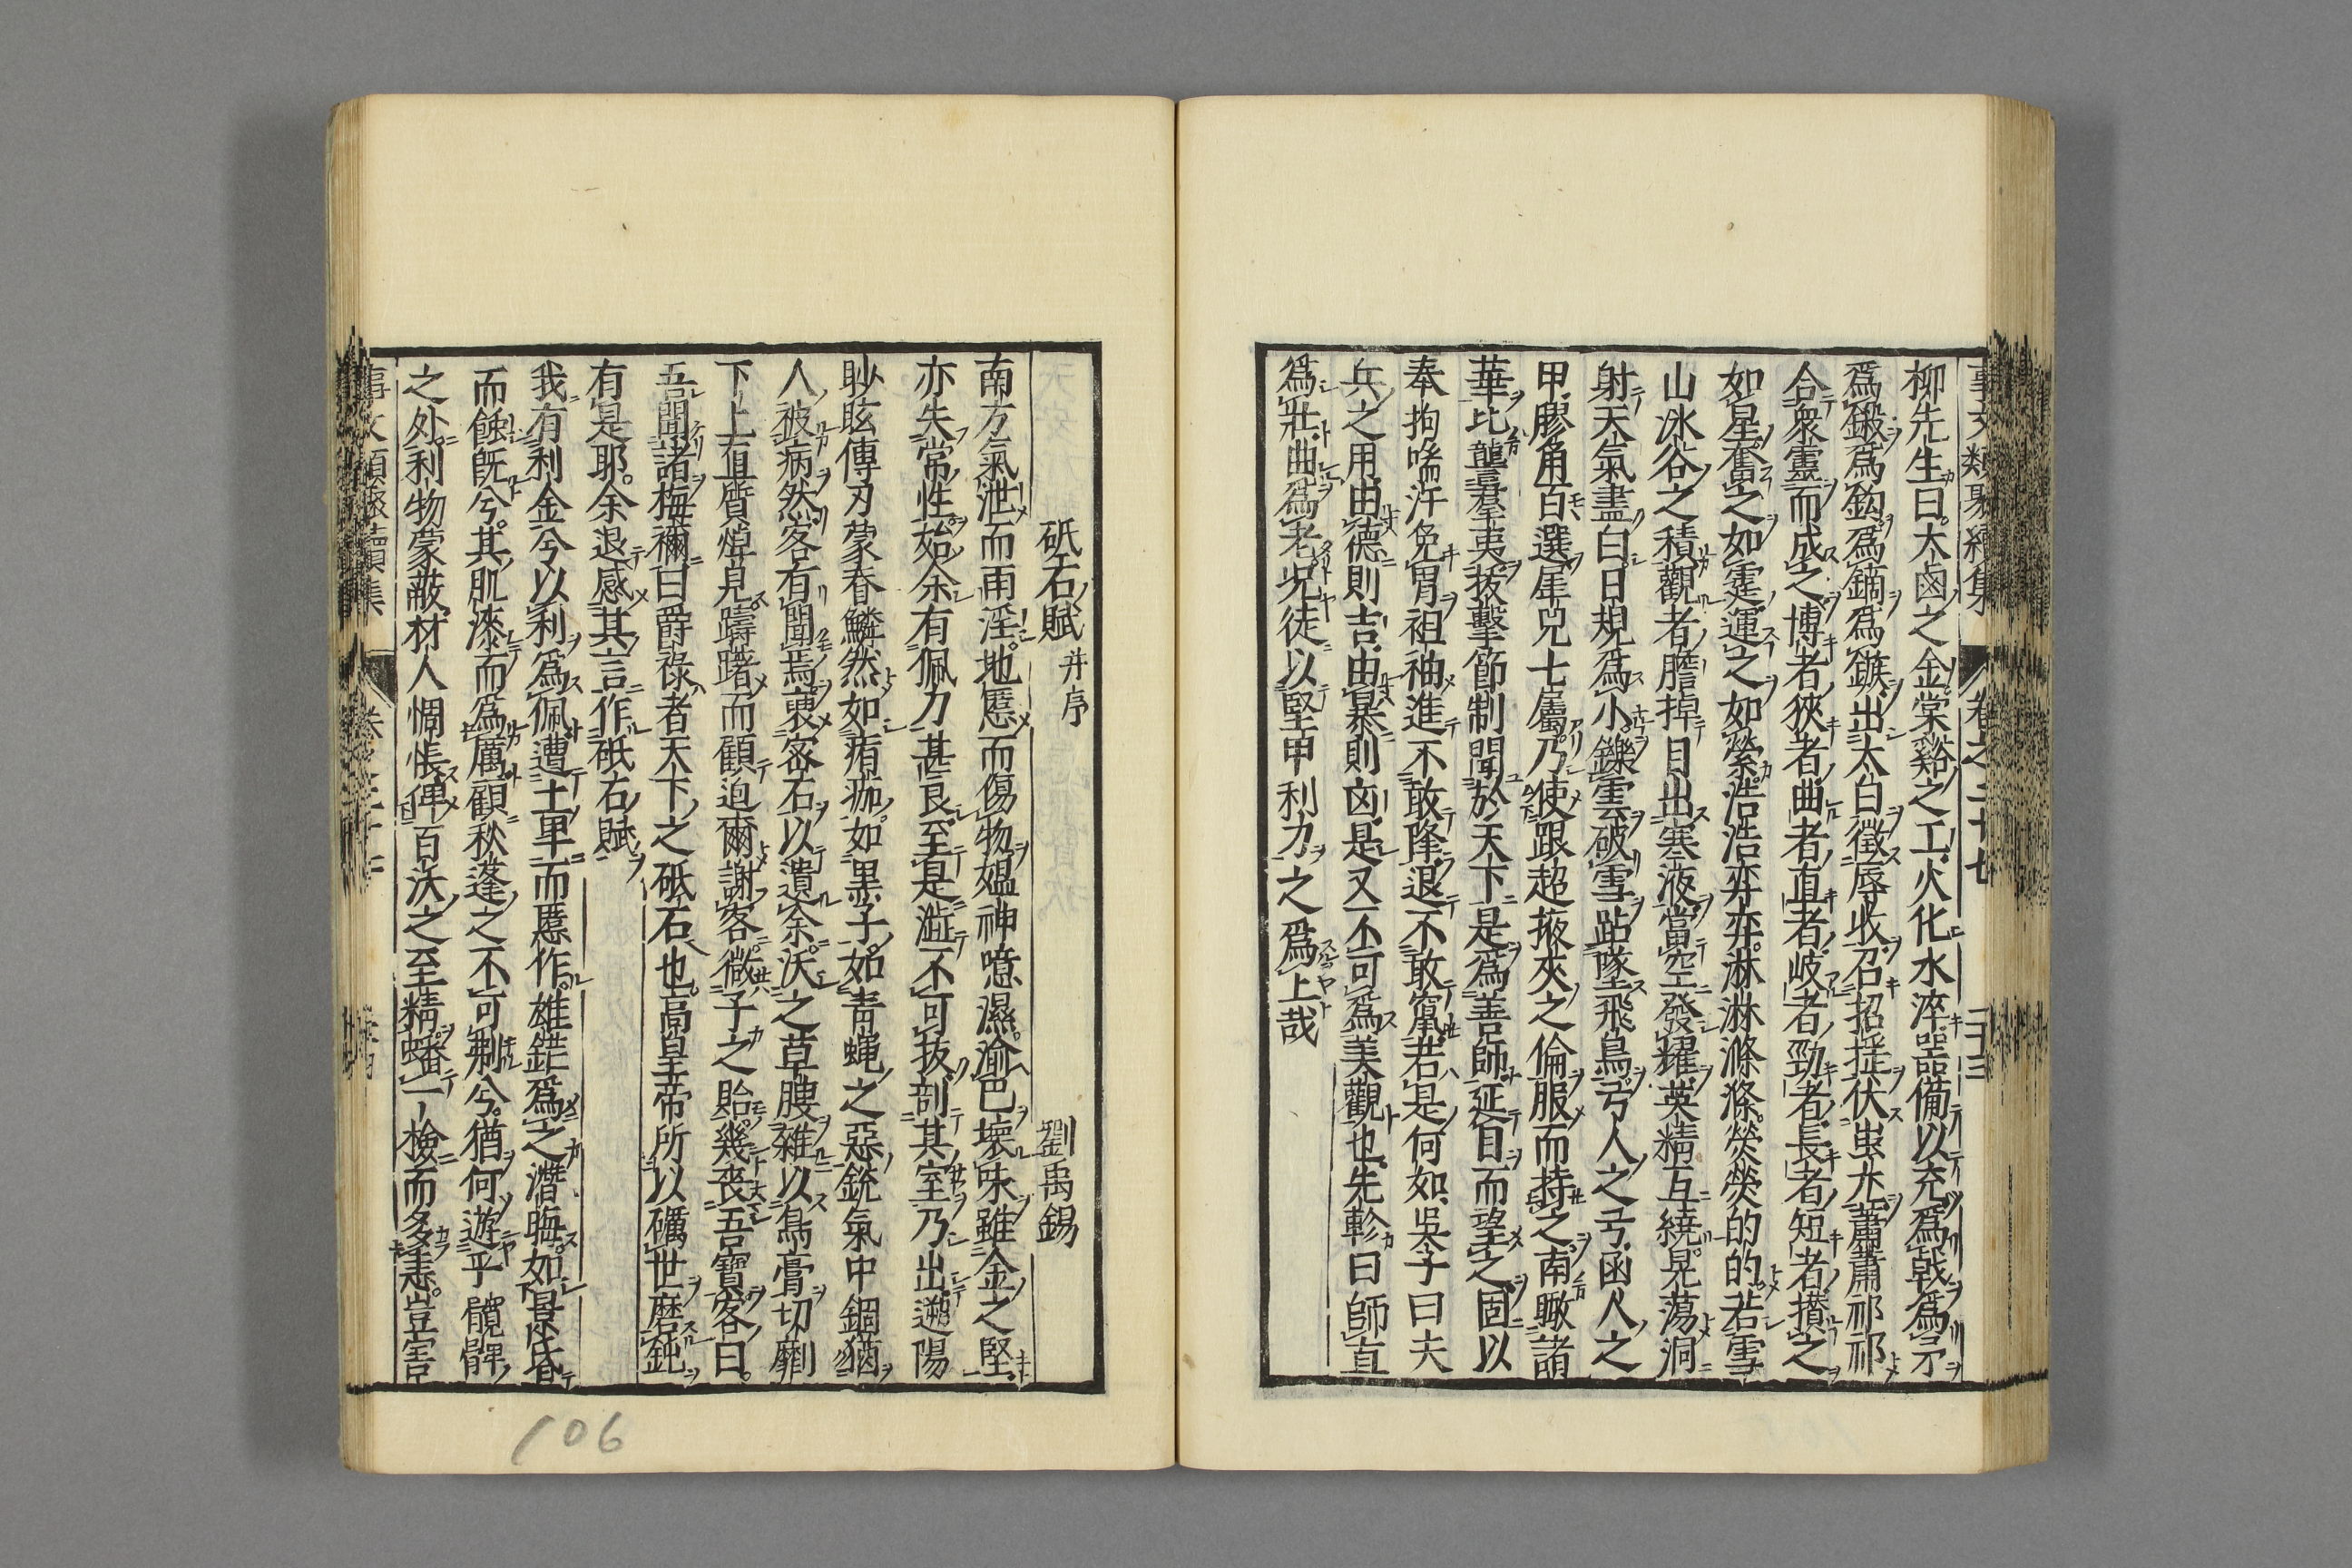 事文類聚續集 卷之二十七 二十三
柳先生曰太鹵之金棠谿之工火化水淬器備以充爲戟爲矛
爲鍛爲鉤爲鏑爲鏃出太白徵蓐收召招搖伏蚩尤肅肅祁祁
合衆靈而成之博者狹者曲者直者岐者勁者長者短者攅之
如星奮之如霆運之如縈浩浩弈弈淋淋滌滌熒熒的的若雪
山冰谷之積觀者膽掉目出寒液當空發耀英精互繞晃蕩洞
射天氣盡白日規爲小鑠雲破霄跕墜飛鳥弓人之弓函人之
甲膠角百選犀兕七屬乃使跟超掖夾之倫服而持之南瞰諸
華北讋羣夷拔擊節制聞於天下是爲善師延目而望之固以
奉拘喘汗免冑袒袖進不敢降退不敢竄若是何如吳子曰夫
兵之用由德則吉由暴則凶是又不可爲美觀也先軫曰師直
爲壯曲爲老况徒以堅甲利刃之爲上哉
砥石賦 并序 劉禹錫
南方氣泄而雨淫地慝而傷物媪神噫濕渝巴壞味雖金之堅
亦失常性始余有佩刀甚良至是澁不可拔剖其室乃出遡陽
眇眩傳刃蒙脊鱗然如痏痂如黑子如青蠅之惡銳氣中錮猶
人被病然客有聞焉裹密石以遺余沃之草腴雜以鳥膏切劘
下上直質焯見躊躇而顧迫爾謝客微子之貽幾喪吾寶客曰
吾聞諸梅福曰爵祿者天下之砥石也高皇帝所以礪世磨鈍
有是耶余退感其言作砥石賦
我有利金兮以利爲佩遭土卑而慝作雄鋩爲之潛晦如景昏
而蝕旣兮其肌漆而爲厲顧秋蓬之不可剸兮猶何遊乎髖髀
之外利物蒙蔽材人惆悵俾百沃之至精蟠一檢而多恚豈害